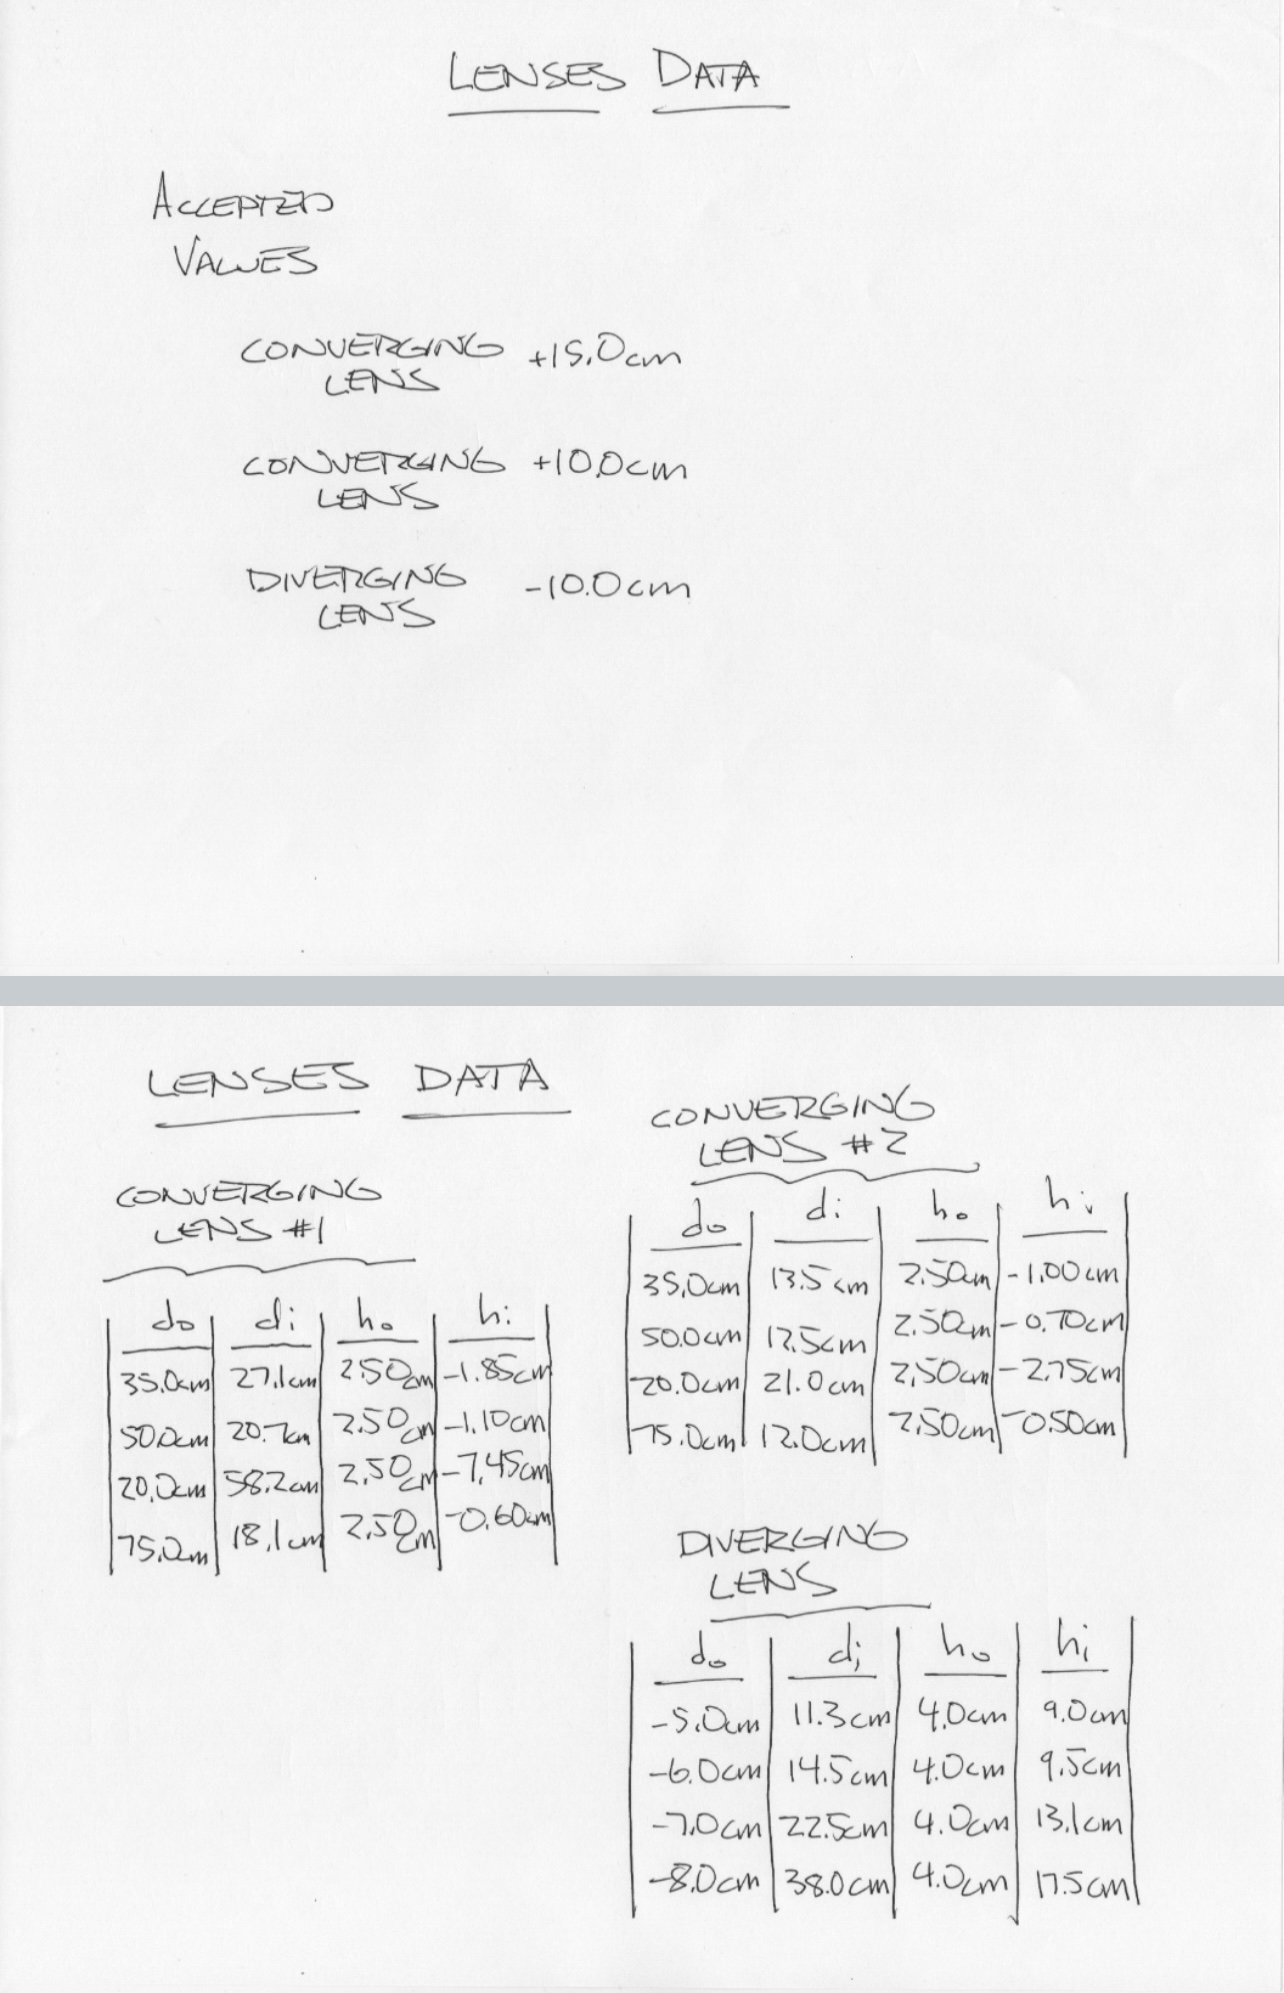 LENSES DATA
ACCEPTED
VALUES
CONVERGING +15.0cm
LENS
CONVERGING +10.0cm
LENS
DIVERGING -10.0cm
LENS
LENSES DATA
CONVERGING
LENS #1
do di ho hi
35.0cm 27.1cm 2.50cm -1.85cm
50.0cm 20.7cm 2.50cm -1.10cm
20.0cm 58.2cm 2.50cm -7.45cm
75.0cm 18.1cm 2.50cm -0.60cm
CONVERGING
LENS #2
do di ho hi
35.0cm 13.5cm 2.50cm -1.00cm
50.0cm 12.5cm 2.50cm -0.70cm
20.0cm 21.0cm 2.50cm -2.75cm
75.0cm 12.0cm 2.50cm -0.50cm
DIVERGING
LENS
do di ho hi
-5.0cm 11.3cm 4.0cm 9.0cm
-6.0cm 14.5cm 4.0cm 9.5cm
-7.0cm 22.5cm 4.0cm 13.1cm
-8.0cm 38.0cm 4.0cm 17.5cm